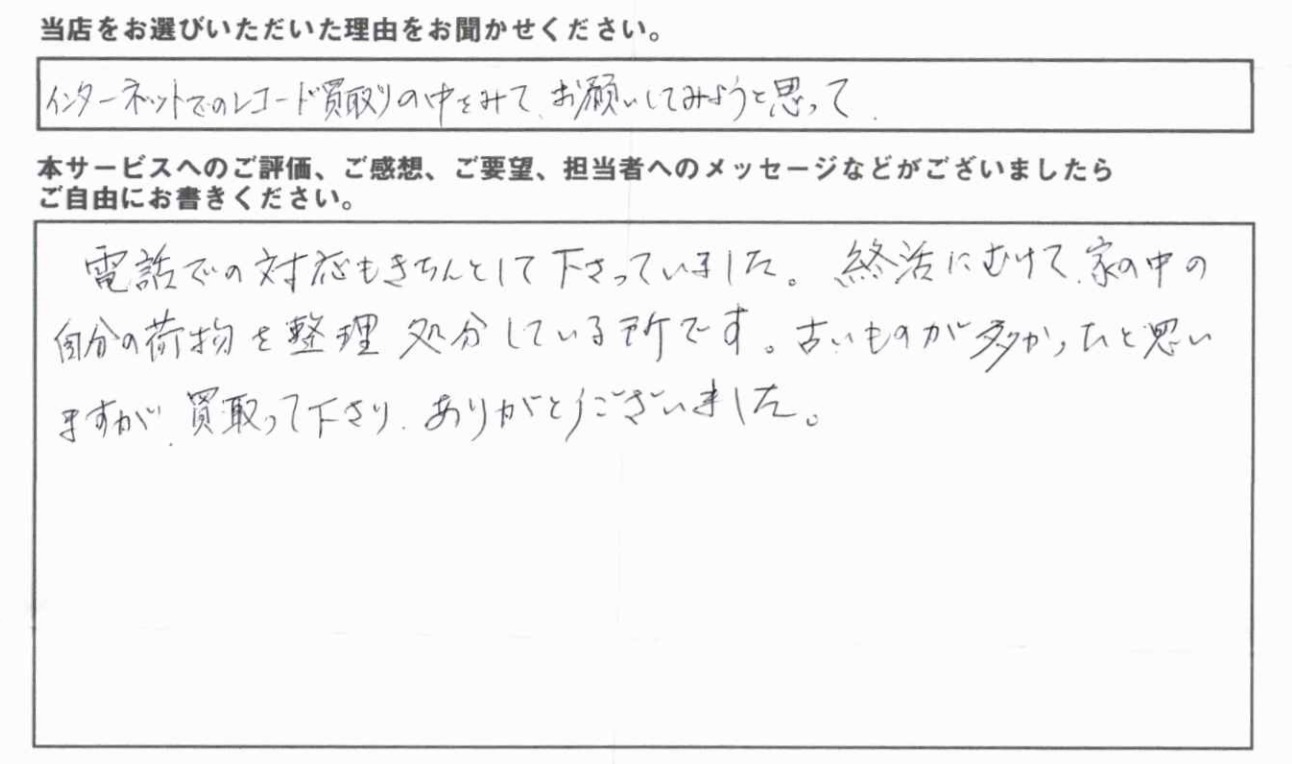 当店をお選びいただいた理由をお聞かせください。
インターネットでのレコード買取りの中をみて、お願いしてみようと思って.
本サービスへのご評価、ご感想、ご要望、担当者へのメッセージなどがございましたら
ご自由にお書きください。
電話での対応もきちんとして下さっていました。終活にむけて、家の中の
自分の荷物を整理処分している所です。古いものが多かったと思い
ますが、買取って下さり、ありがとうございました。